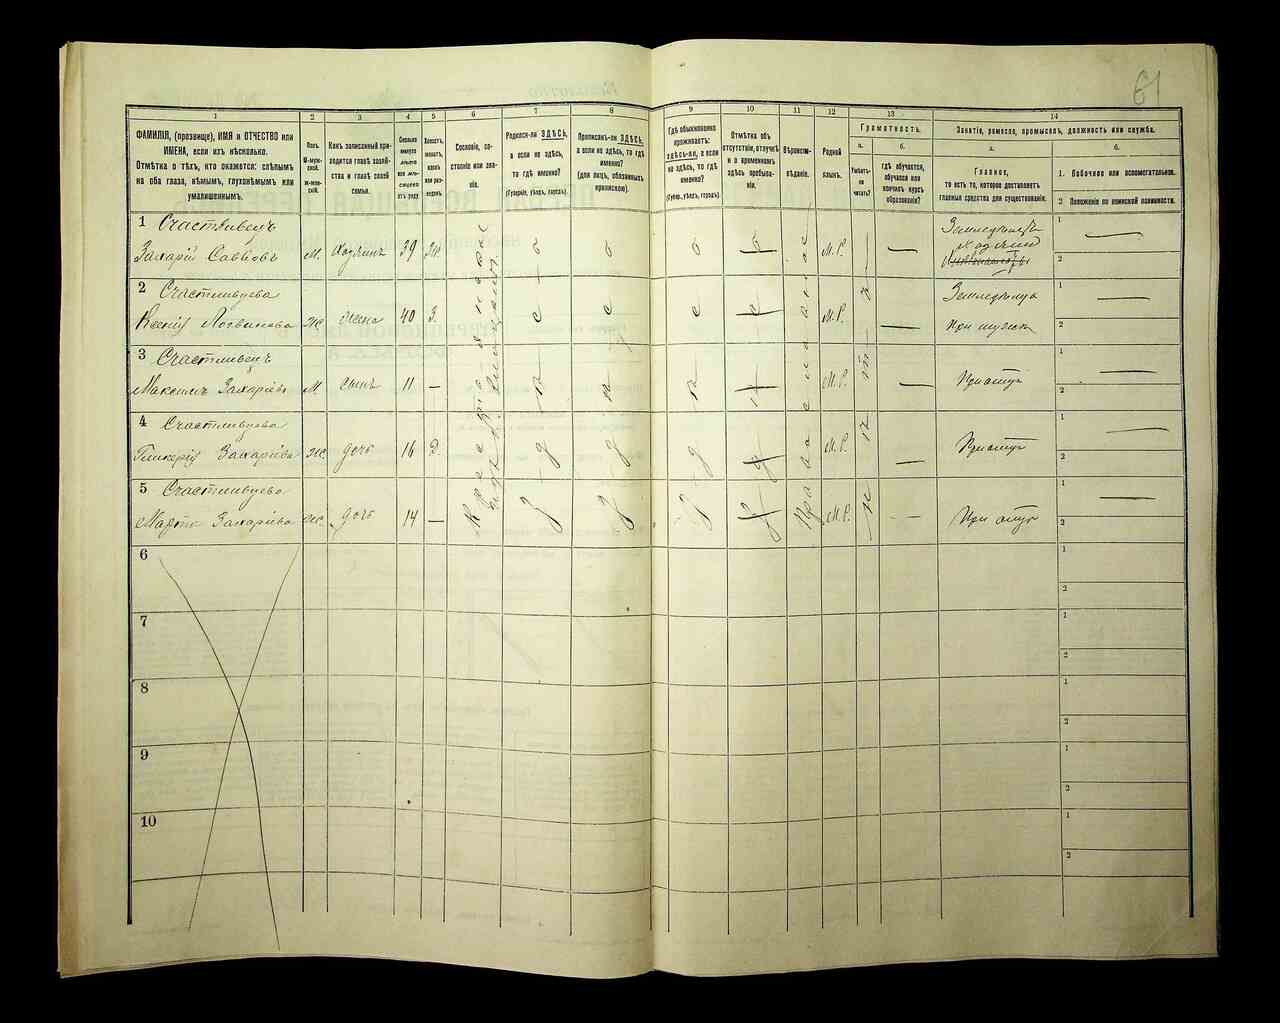 61
1
2
3
4
5
6
7
8
9
10
11
12
13
14
ФАМИЛІЯ, (прозвище), ИМЯ и ОТЧЕСТВО или
ИМЕНА, если ихъ нѣсколько.
Отмѣтка о тѣхъ, кто окажется: слѣпымъ
на оба глаза, нѣмымъ, глухонѣмымъ или
умалишеннымъ.
Полъ.
М-муж-
ской.
Ж-жен-
скій.
Какъ записанный при-
ходится главѣ хозяй-
ства и главѣ своей
семьи.
Сколько
минуло
лѣтъ
или мѣ-
сяцевъ
отъ роду
Холостъ,
женатъ,
вдовъ
или раз-
веденъ.
Сословіе, со-
стояніе или зва-
ніе.
Родился-ли ЗДѢСЬ,
а если не здѣсь,
то гдѣ именно?
(Губернія, уѣздъ, городъ).
Приписанъ-ли ЗДѢСЬ,
а если не здѣсь, то гдѣ
именно?
(для лицъ, обязанныхъ
припиской).
Гдѣ обыкновенно
проживаетъ:
здѣсь-ли, а если
не здѣсь, то гдѣ
именно?
(Губер., уѣздъ, городъ).
Отмѣтка объ
отсутствіи, отлучкѣ
и о временномъ
здѣсь пребыва-
ніи.
Вѣроиспо-
вѣданіе.
Родной
языкъ.
Грамотность.
а.
Умѣетъ-
ли
читать?
б.
гдѣ обучается,
обучался или
кончилъ курсъ
образованія?
Занятіе, ремесло, промыселъ, должность или служба.
а.
Главное,
то есть то, которое доставляетъ
главныя средства для существованія.
б.
1. Побочное или вспомогательное.
2 Положеніе по воинской повинности.
1 Счастливецъ
Захарій Саввовъ
М.
Хозяинъ
39
Ж.
Крестьянинъ
Православное
М.Р.
—
Земледѣлецъ
Хозяинъ
—
2 Счастливцева
Ксенія Логвинова
Ж.
Жена
40
З.
М.Р.
—
Земледѣлица
При мужѣ
—
3 Счастливецъ
Максимъ Захаріевъ
М
сынъ
11
—
М.Р.
—
При отцѣ
—
4 Счастливцева
Гликерія Захаріева
Ж.
дочь
16
Д.
М.Р.
—
При отцѣ
—
5 Счастливцева
Марта Захаріева
Ж.
дочь
14
—
М.Р.
—
При отцѣ
—
6
7
8
9
10